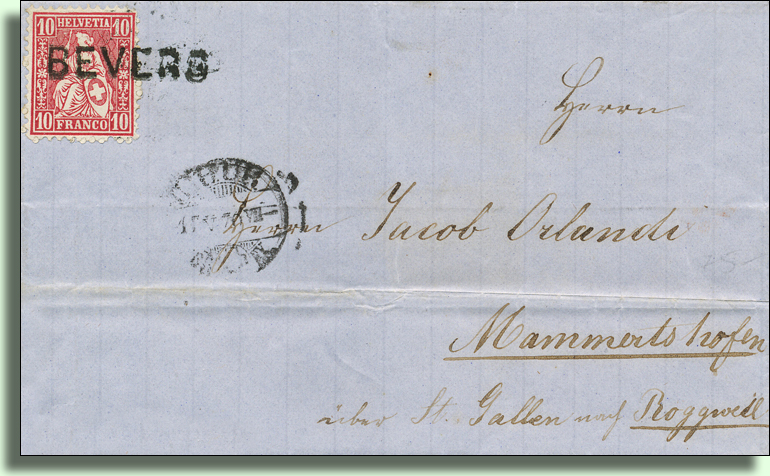 10 HELVETIA 10
BEVERS
10 FRANCO 10
Herrn
Herrn Jacob Orlandi
Mammertshofen
über St. Gallen nach Roggweil